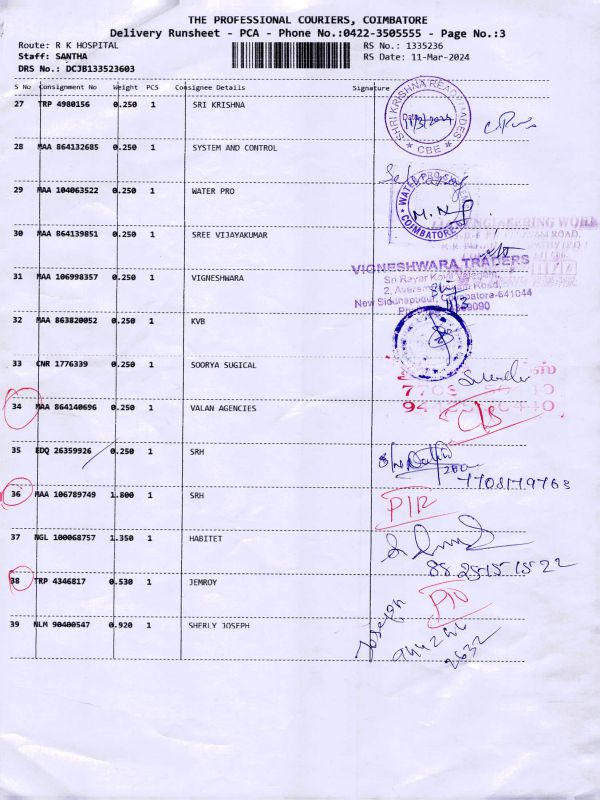 THE PROFESSIONAL COURIERS, COIMBATORE
Delivery Runsheet - PCA - Phone No.:0422-3505555 - Page No.:3
Route: R K HOSPITAL RS No.: 1335236
Staff: SANTHA RS Date: 11-Mar-2024
DRS No.: DCJB133523603
S No Consignment No Weight PCS Consignee Details Signature
27 TRP 4980156 0.250 1 SRI KRISHNA
SHRI KRISHNA READYMADES
11/3/2024
CBE
28 MAA 864132685 0.250 1 SYSTEM AND CONTROL
29 MAA 104063522 0.250 1 WATER PRO
WATER PRO
COIMBATORE
M.N
30 MAA 864139851 0.250 1 SREE VIJAYAKUMAR
ENGINEERING WORK
ROAD,
31 MAA 106998357 0.250 1 VIGNESHWARA
VIGNESHWARA TRADERS
New Siddhapudur, Coimbatore-641044
32 MAA 863820052 0.250 1 KVB
33 CNR 1776339 0.250 1 SOORYA SUGICAL
34 MAA 864140696 0.250 1 VALAN AGENCIES
35 EDQ 26359926 0.250 1 SRH
7708179763
36 MAA 106789749 1.800 1 SRH
37 NGL 100068757 1.350 1 HABITET
88 2515 15 22
38 TRP 4346817 0.530 1 JEMROY
39 NLM 90400547 0.920 1 SHERLY JOSEPH
Joseph